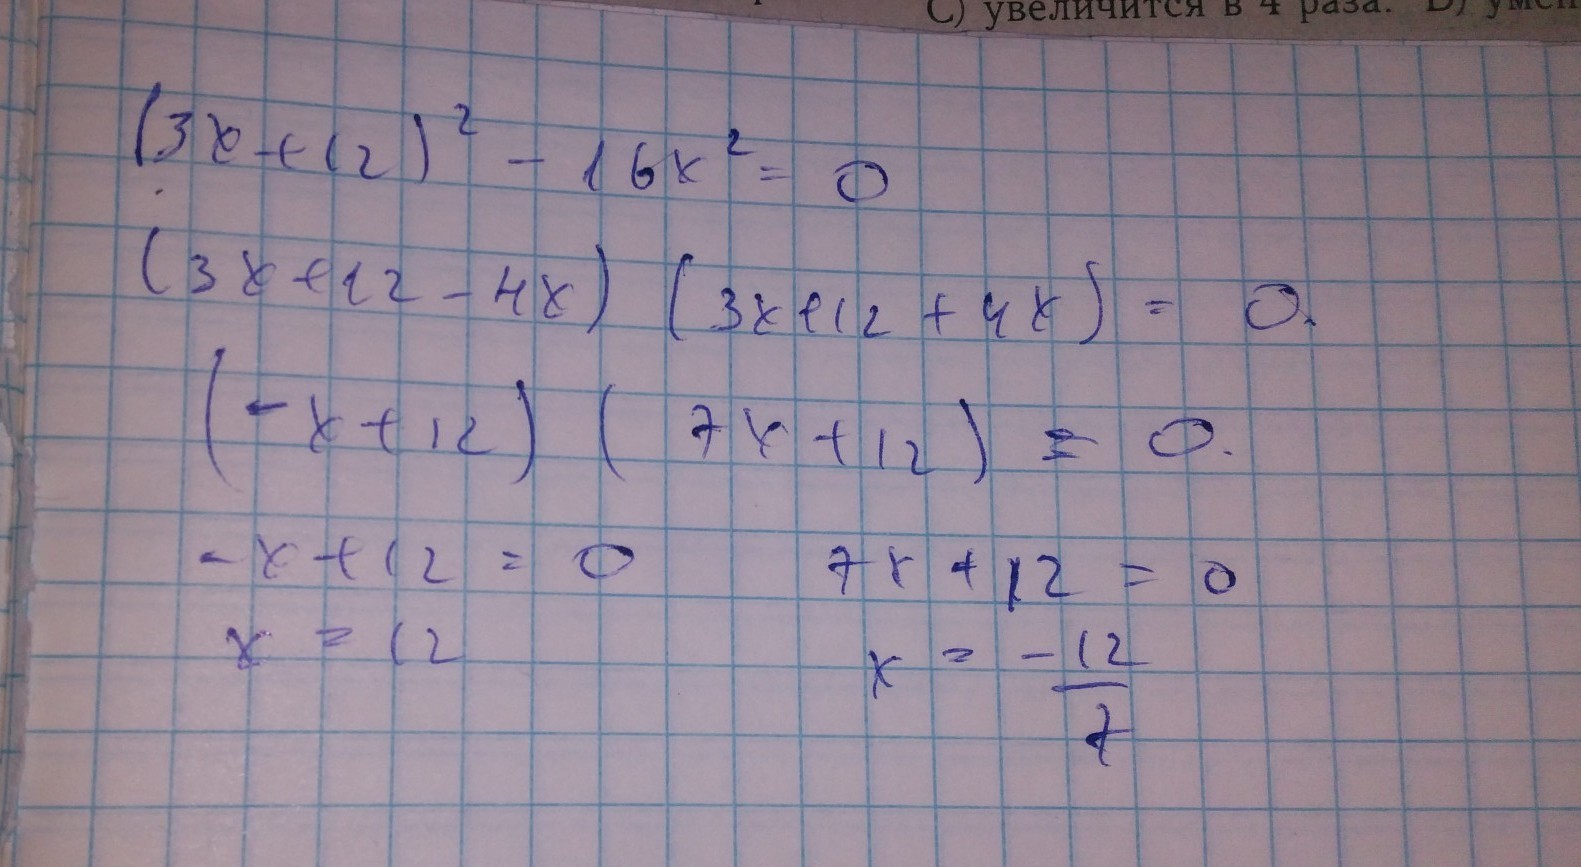 C) увеличится в 4 раза. D) умен
(3x+12)² - 16x² = 0
(3x+12-4x) (3x+12+4x) = 0.
(-x+12) (7x+12) = 0.
-x+12 = 0 7x+12 = 0
x = 12 x = -12/7